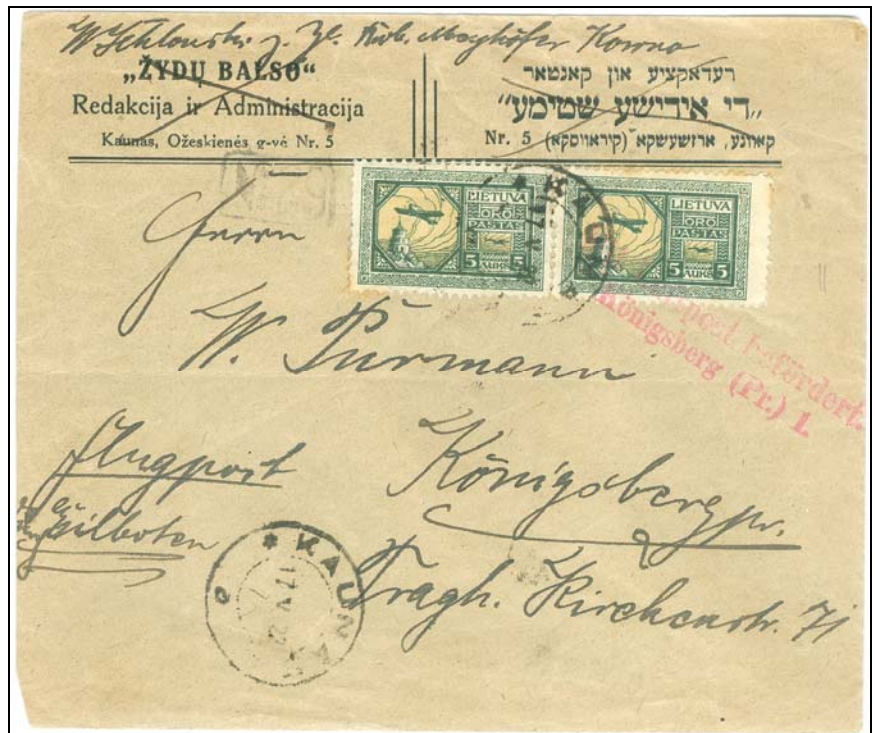 Kowno
„ŽYDŲ BALSO“
Redakcija ir Administracija
Kaunas, Ožeskienės g-vė Nr. 5
רעדאקציע און קאנטאר
„די אידישע שטימע”
קאוונע, ארזשעשקא (קיראווסקא) Nr. 5
LIETUVA
ORO
PAŠTAS
5 AUKS 5
LIETUVA
ORO
PAŠTAS
5 AUKS 5
KA
befördert.
Königsberg (Pr.) 1.
Herrn
W. Purmann
Flugpost
Eilboten
Königsberg pr.
Tragh. Kirchenstr. 71
KAUNAS